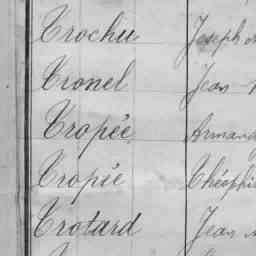 Trochu Joseph
Tronel Jean
Tropée Armand
Tropée Théophi
Trotard Jean